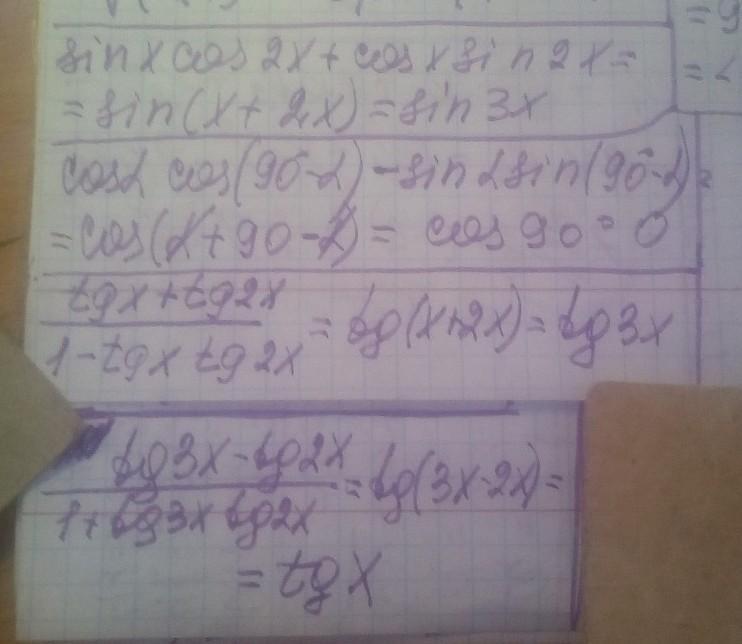 sin x cos 2x + cos x sin 2x =
= sin(x + 2x) = sin 3x
cos α cos(90°-α) - sin α sin(90°-α) =
= cos(α + 90 - α) = cos 90° 0
tg x + tg 2x
1 - tg x tg 2x
= tg(x+2x) = tg 3x
tg 3x - tg 2x
1 + tg 3x tg 2x
= tg(3x-2x) =
= tg x